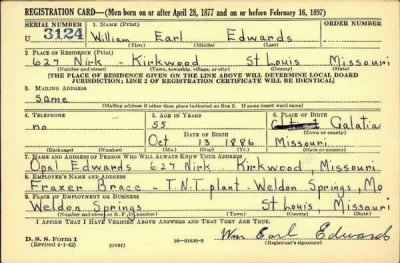 REGISTRATION CARD—(Men born on or after April 28, 1877 and on or before February 16, 1897)
SERIAL NUMBER 1. NAME (Print) ORDER NUMBER
U 3124 William Earl Edwards
(First) (Middle) (Last)
2. PLACE OF RESIDENCE (Print)
627 Nirk - Kirkwood St Louis Missouri
(Number and street) (Town, township, village, or city) (County) (State)
[THE PLACE OF RESIDENCE GIVEN ON THE LINE ABOVE WILL DETERMINE LOCAL BOARD
JURISDICTION; LINE 2 OF REGISTRATION CERTIFICATE WILL BE IDENTICAL]
3. MAILING ADDRESS
Same
[Mailing address if other than place indicated on line 2. If same insert word same]
4. TELEPHONE 5. AGE IN YEARS 6. PLACE OF BIRTH
no 55 Galatia
DATE OF BIRTH (Town or county)
Oct 13 1886 Missouri
(Exchange) (Number) (Mo.) (Day) (Yr.) (State or country)
7. NAME AND ADDRESS OF PERSON WHO WILL ALWAYS KNOW YOUR ADDRESS
Opal Edwards 627 Nirk - Kirkwood, Missouri
8. EMPLOYER'S NAME AND ADDRESS
Frazer Brace - T.N.T. plant - Weldon Springs, Mo
9. PLACE OF EMPLOYMENT OR BUSINESS
Weldon Springs St Louis, Missouri
(Number and street or R. F. D. number) (Town) (County) (State)
I AFFIRM THAT I HAVE VERIFIED ABOVE ANSWERS AND THAT THEY ARE TRUE.
D. S. S. Form 1
(Revised 4-1-42) (over) 16-21630-2 Wm Earl Edwards
(Registrant's signature)